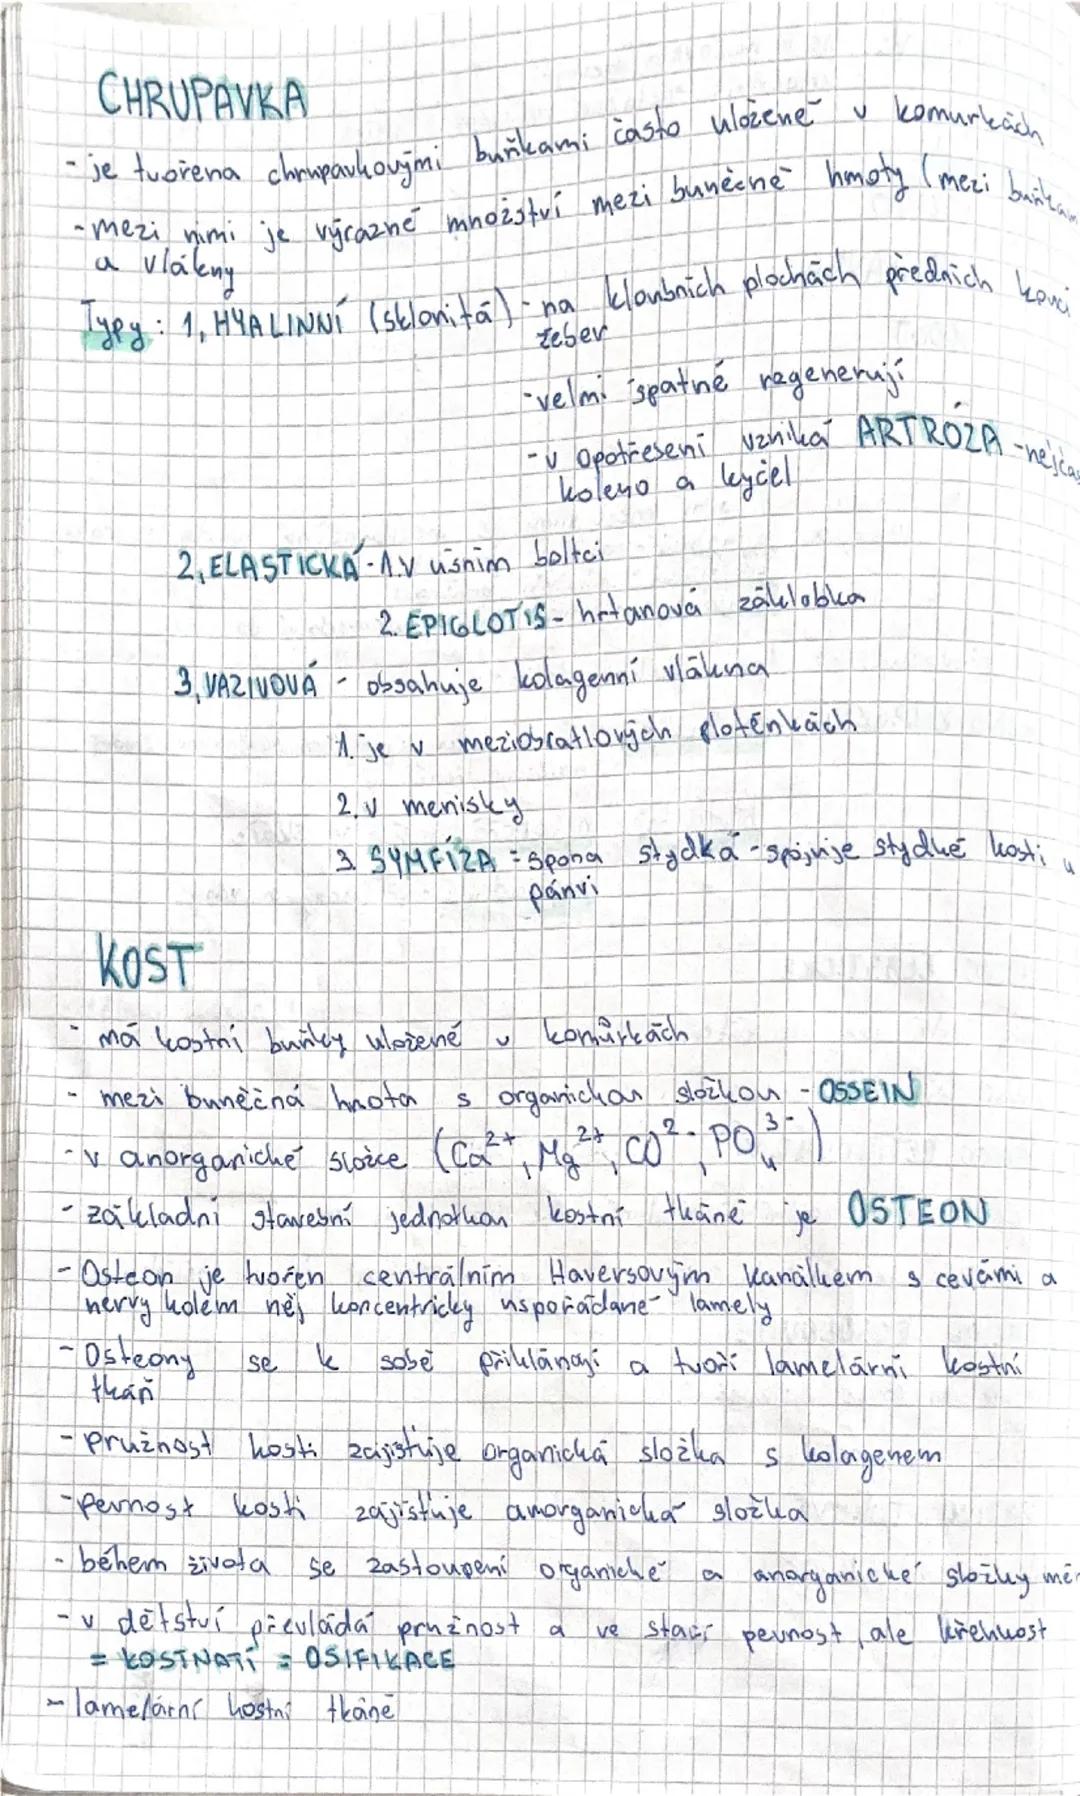 CHRUPAVKA
- je tvořena chrupavkovými buňkami často uložené v komurkách
- mezi nimi je výrazné množství mezi buněčné hmoty (mezi buňkam
a vlákny
Typy: 1, HYALINNÍ (sklovitá) - na kloubních plochách předních konci
žeber
- velmi špatné regenerují
- v opotřebení vzniká ARTRÓZA - nejčas
koleno a kyčel
2, ELASTICKÁ - 1. V ušním boltci
2. EPIGLOTIS - hrtanová záklobka
3, VAZIVOVÁ - obsahuje kolagenní vlákna
1. je v meziobratlových ploténkách
2. v menisky
3. SYMFÍZA = spona stydká - spojuje stydké kosti v
pánvi
KOST
- má kostní buňky uložené v komůrkách
- mezi buněčná hmota s organickou složkou - OSSEIN
- v anorganické složce (Ca²⁺, Mg²⁺, CO²⁻, PO₄³⁻)
- základní stavební jednotkou kostní tkáně je OSTEON
- Osteon je tvořen centrálním Haversovým kanálkem s cevámi a
nervy kolem něj koncentricky uspořádané lamely
- Osteony se k sobě přiklánají a tvoří lamelární kostní
tkáň
- pružnost kosti zajistuje organická složka s kolagenem
- pevnost kosti zajištuje anorganická složka
- během života se zastoupení organické a anorganické složky měn
- v dětství převládá pružnost a ve staří pevnost, ale křehkost
= KOSTNATÍ = OSIFIKACE
- lamelární kostní tkáně